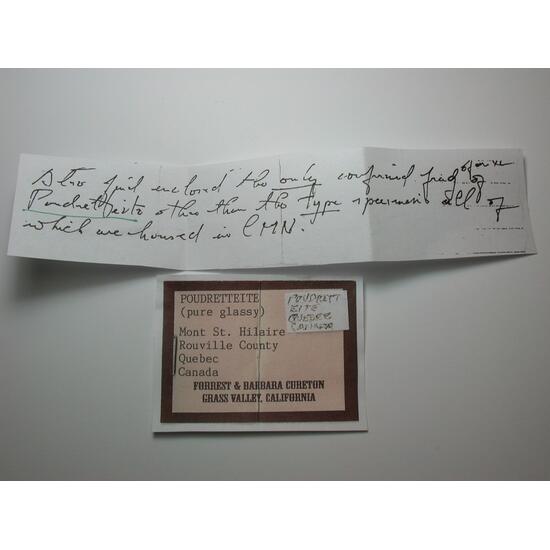 Also find enclosed the only confirmed find of
Poudretteite other than the type specimens all of
which are housed in CMN.
POUDRETTEITE
(pure glassy)
Mont St. Hilaire
Rouville County
Quebec
Canada
FORREST & BARBARA CURETON
GRASS VALLEY, CALIFORNIA
POUDRETT
EITE
QUEBEC
CANADA